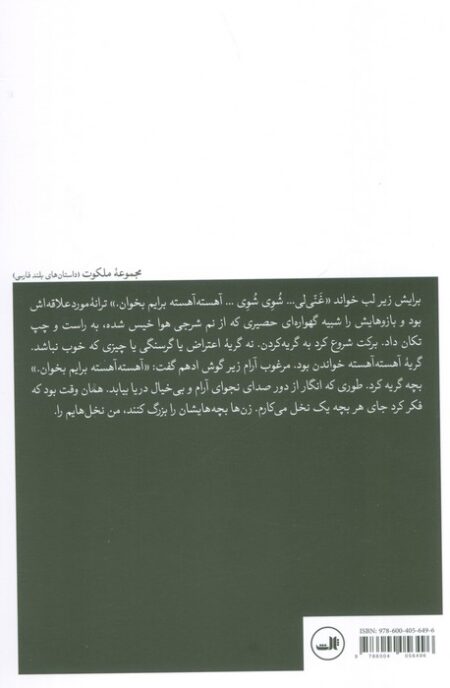 مجموعهٔ ملکوت (داستان‌های بلند فارسی)
برایش زیر لب خواند «غَنّی‌لی... شُوی شُوی ... آهسته‌آهسته برایم بخوان.» ترانهٔ موردعلاقه‌اش
بود و بازوهایش را شبیه گهواره‌ای حصیری که از نم شرجی هوا خیس شده، به راست و چپ
تکان داد. برکت شروع کرد به گریه‌کردن. نه گریهٔ اعتراض یا گرسنگی یا چیزی که خوب نباشد.
گریهٔ آهسته‌آهسته خواندن بود. مرغوب آرام زیر گوش ادهم گفت: «آهسته‌آهسته برایم بخوان.»
بچه گریه کرد. طوری که انگار از دور صدای نجوای آرام و بی‌خیال دریا بیابد. همان وقت بود که
فکر کرد جای هر بچه یک نخل می‌کارم. زن‌ها بچه‌هایشان را بزرگ کنند، من نخل‌هایم را.
ISBN: 978-600-405-649-6
ثالث
9 786004 056496